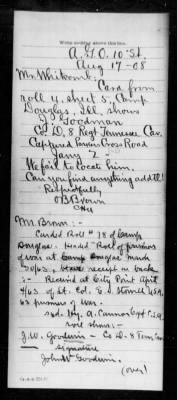 Write nothing above this line.
A.G.O. 10" St.
Aug 17-08
Mr. Whitcomb:
Card from
roll 4, sheet 5, Camp
Douglas, Ill. shows
Goodman
Co D, 8 Regt Tennessee Cav.
Captured Parkers Cross Road
Jany 2
We fail to locate him.
Can you find anything odd?
Respectfully
O B Brown
Mr. Brown:-
Carded Roll # 78 of Camp
Douglas. Headed "Roll of prisoners
of war at Camp Douglas" Mar
30/63, receipt on back
:- Received at City Point April
4/63 of Lt. Col. U.S.A.
63 prisoners of war.
Capt C.S.A.
roll shows:-
J.W. Goodwin - Co D-8 Tenn
signature
John W Goodwin.
(over)